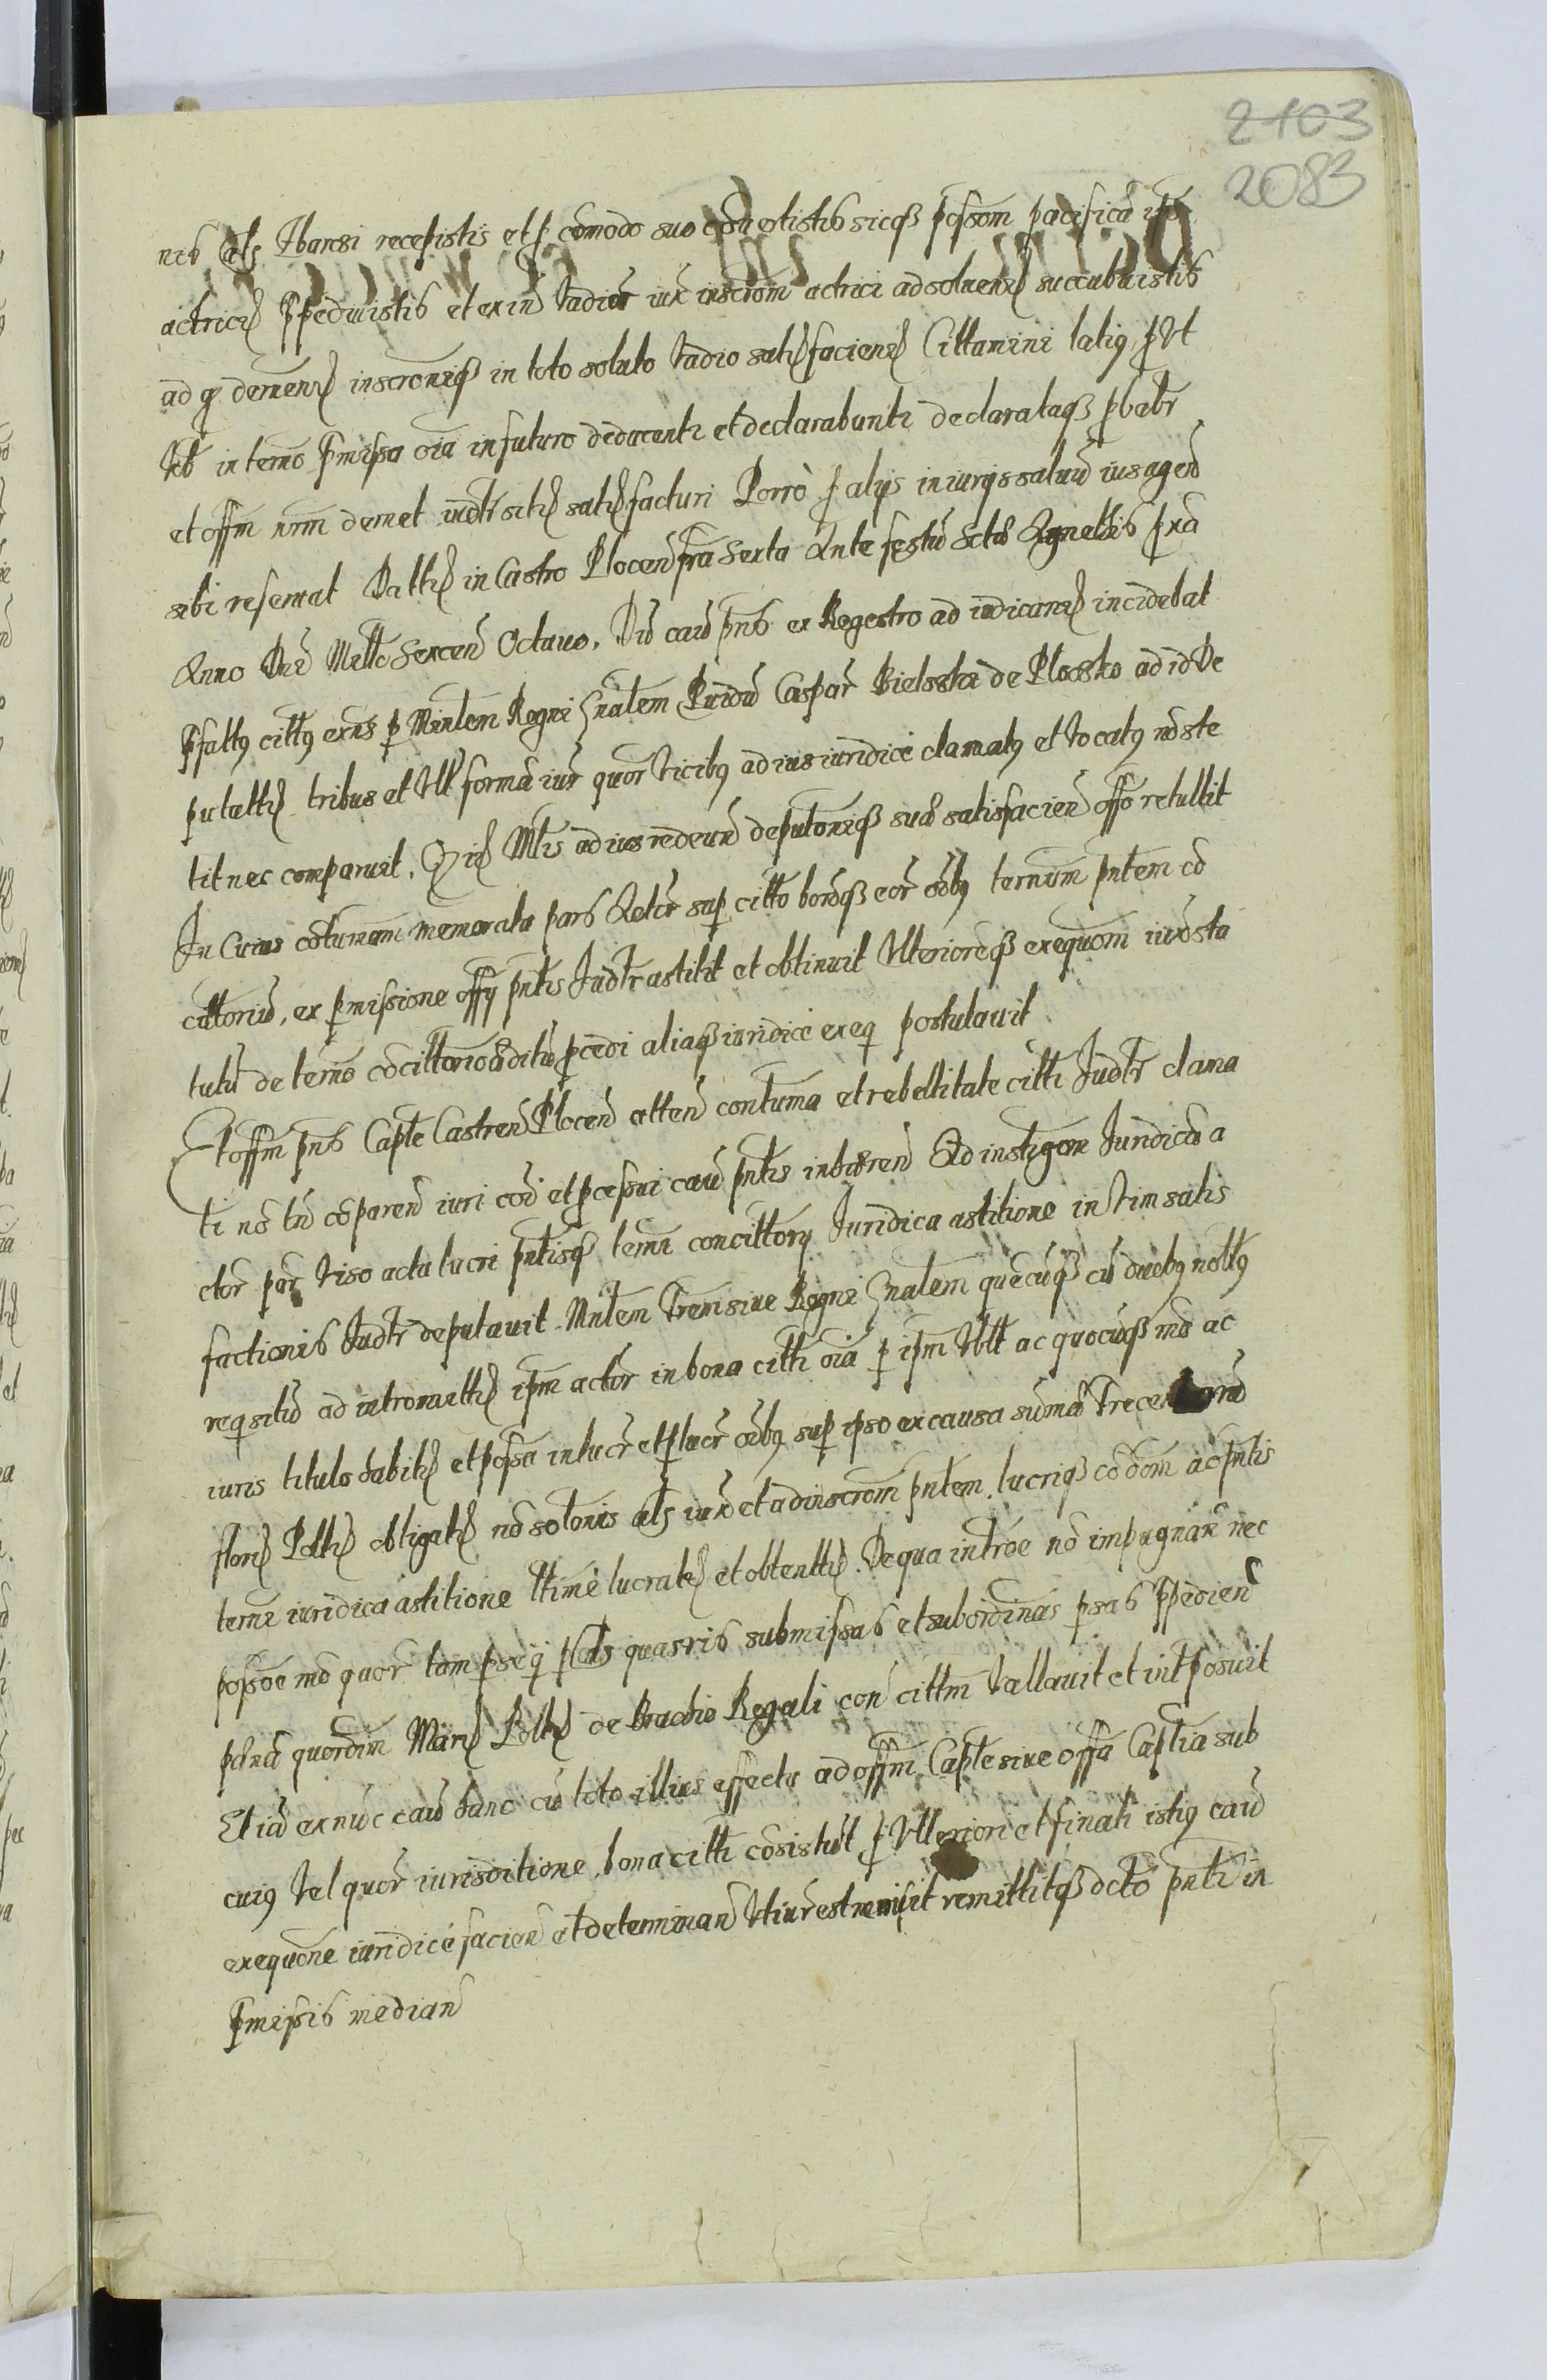 2103
2083
nes als Zbarszi recepistis et p comodo suo conuertistis sicqз possom pacificā ipī
actricē Ppediuistis et ex inde vadiū iux inscrom actrici ad soluend succubuistis
ad q demend inscroneqз in toto soluto vadio satisfaciend Cittamini latiq put
vob in termo Pmissa oīa in futuro deducenti et declarabunti declarataqз pbabr
et offm nrm demet iudtr satisfacturi Porrò p alijs iniurijs saluū ius agen
sibi reseruat Datt in Castro Plocen fria Sexta Ante festū Sctæ Agnettis px̄a
Anno Dnī Mill Sexcen Octauo. Dū caū pns ex Regestro ad iudicand incidebat
Pfattq cittq exns p Mintem Regni Gnalem Puidū Caspar Bielsski de Plocsko ad id de
putatt tribus et vlt forma iur quor vicibq ad ius iuridicè clamatq et vocatq nō ste
tit nec comparuit. Qui Mtis ad ius redeun deputoneqз suæ satisfacien offo retullit
In Cuius cotumam memorata pars Actr sup citto bonqз eor oibq ternum pntem cō
cittoriū, ex pmissione offij pntis Judtr astitit et obtinuit Vlterioreqз exequom iuxsta
tutū de termo cōcittorio oditū pcedi aliaqз iuridicè exeq postulauit
Et offm pns Capte Castren Plocen atten contuma et rebellitate citti Judtr clama
ti nō tn cōparen iuri coi et pcessui caū pntis inhæren Ad instigom Juridicā a
ctor par viso actu lucri pntisqз termi concittorij Juridica astitione in vim satis
factionis Judtr deputauit Mntem Trem siue Regni Gnalem quecuqз cū duobq nobtq
reqsitū ad intromitt ipm actor in bona citti oīa p ipm vllt ac quocuqз mō ac
iuris titulo habit et possa in lucr et plucr oibq sup ipso ex causa sumæ Trecentorū
floren Polt obligat nō solonis als iux et ad inscrom pntem lucriqз cōdom ac pntis
termi iuridica astitione ltimè lucrat et obtentt. De qua introe nō impugnan nec
possoe mō quor tam p se q p als quasvis submissas et subordinas psas Ppedien
pœna quordim Marc Polt de Brachio Regali con cittm vallauit et intposuit
Et iā ex nūc caū hanc cū toto illius effectu ad offm Capte siue offa Captia sub
cuiq vel quor iurisditione bona citti cōsistūt p vlteriori et finali istiq caū
exequone iuridicè facien et determinan vti iur est remisit remittitqз dcto pnti in
Pmissis median